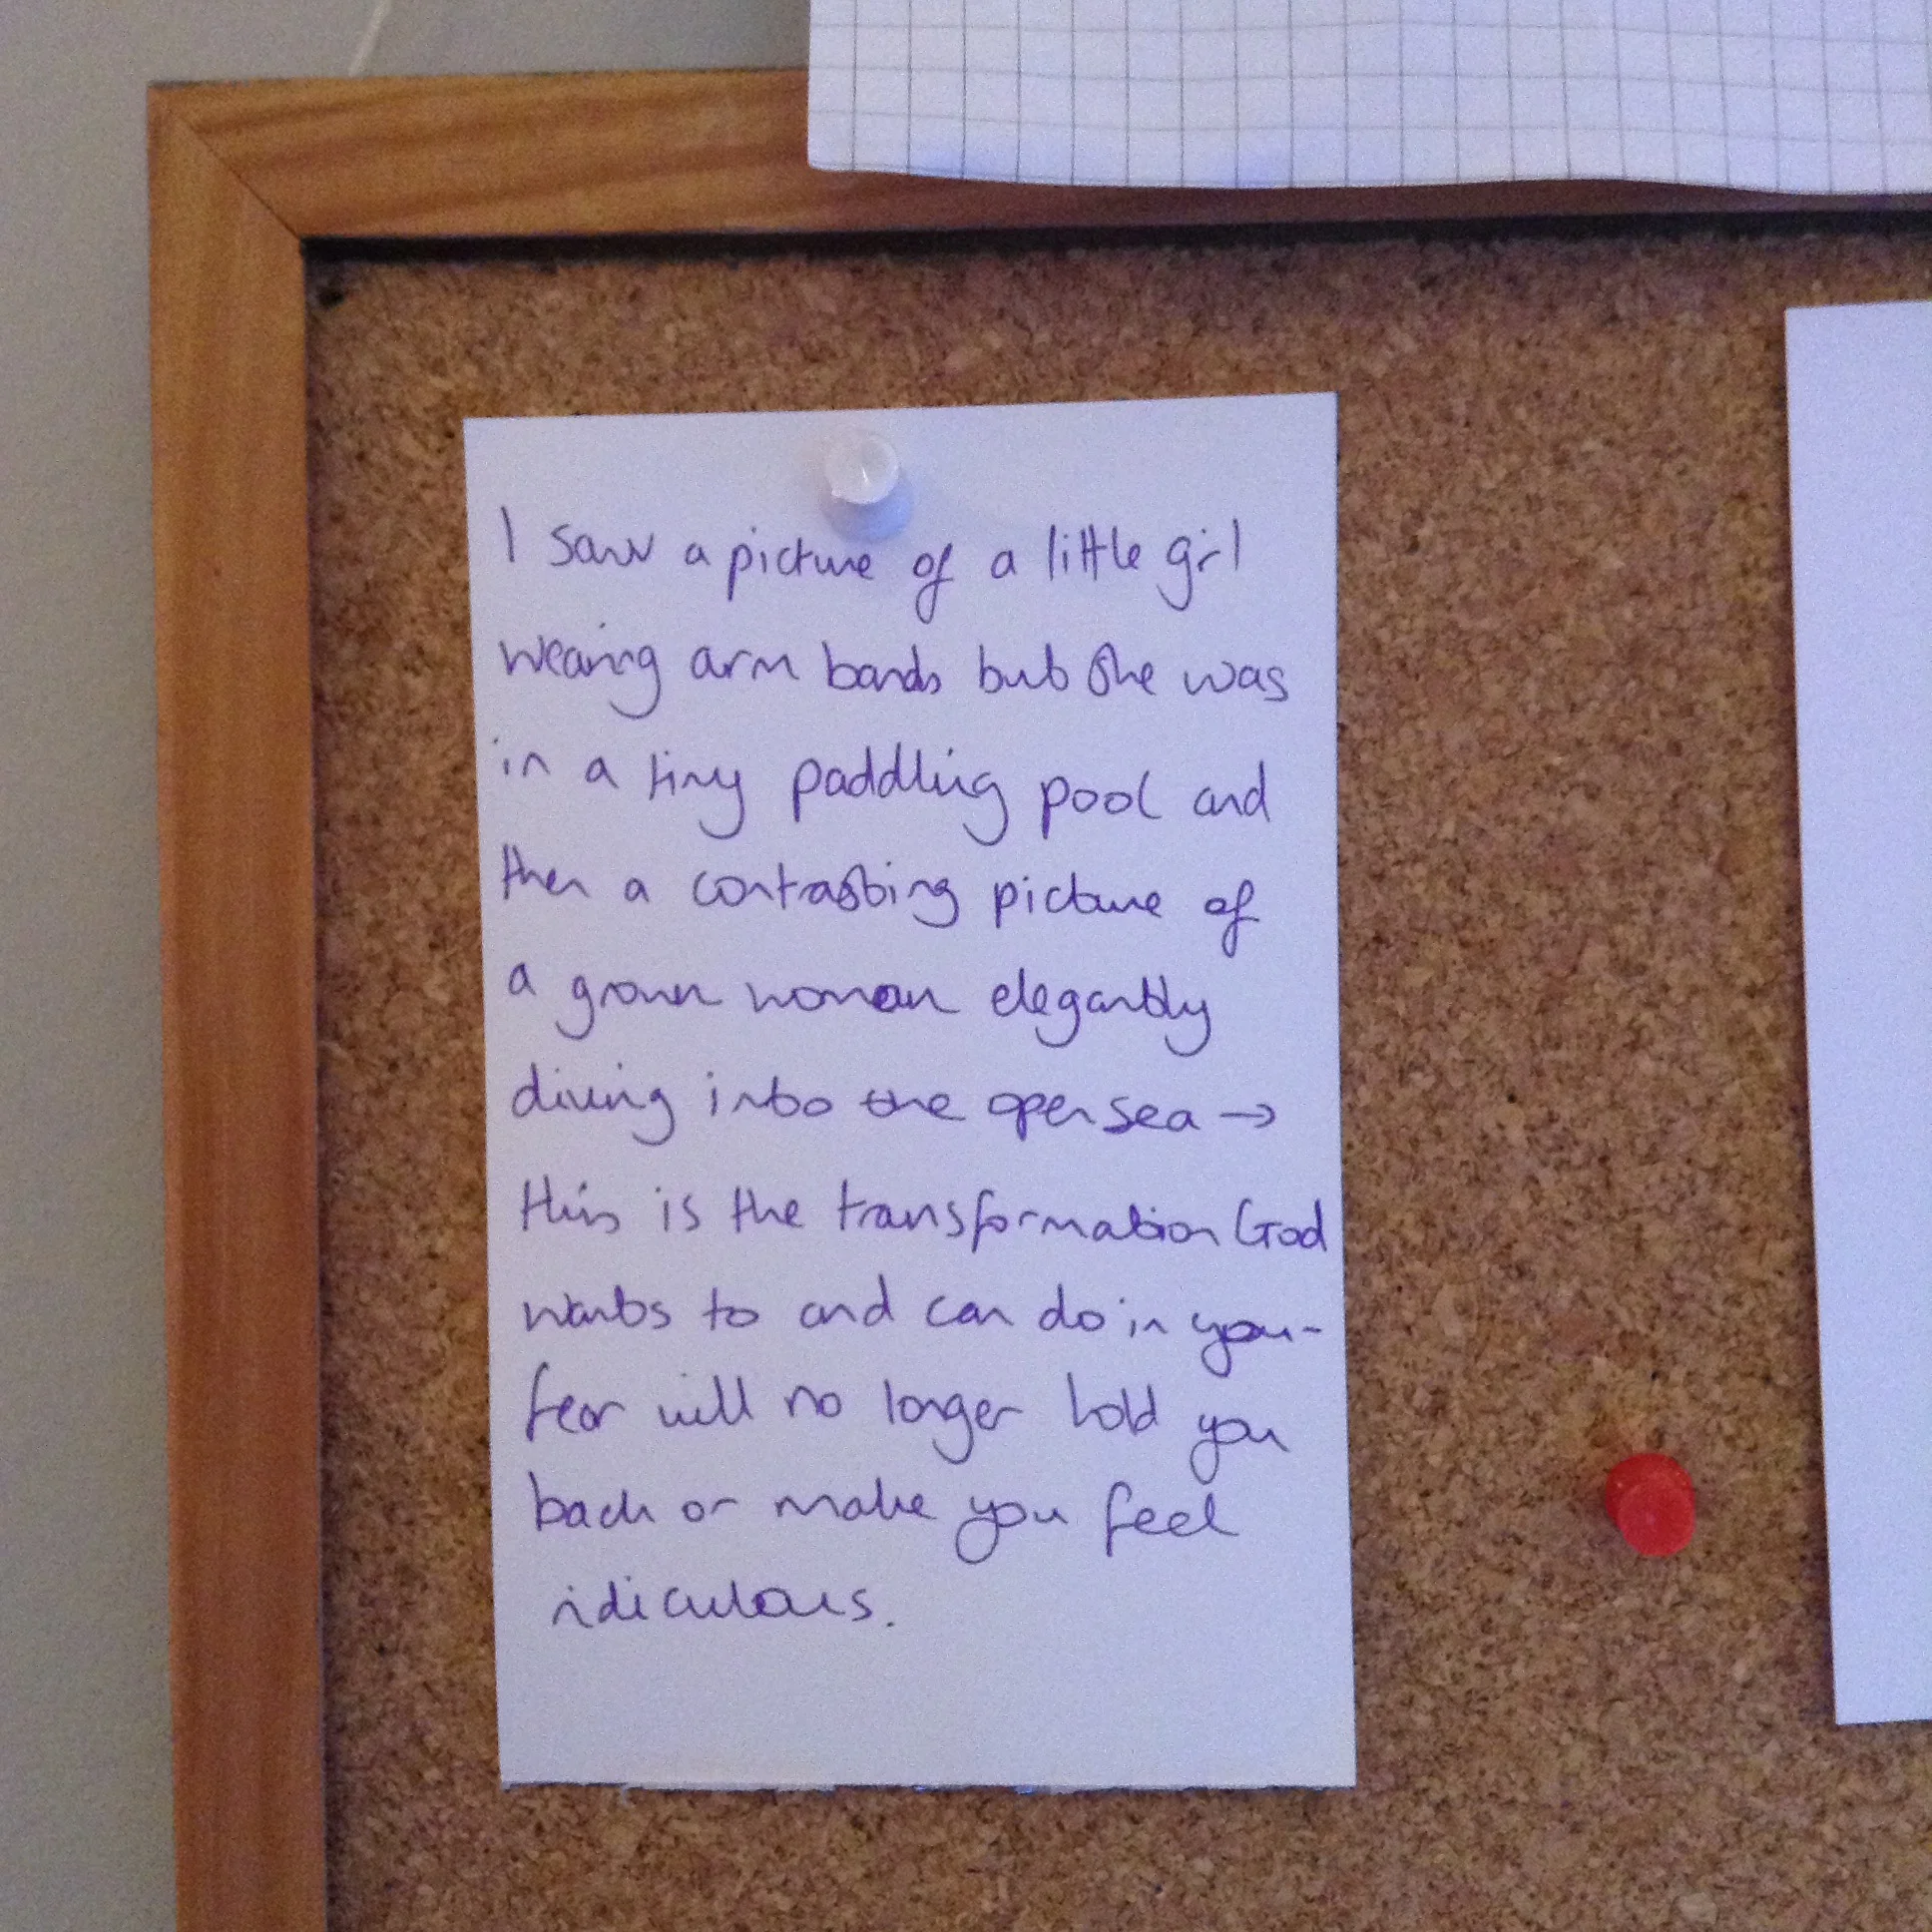 I saw a picture of a little girl
wearing arm bands but she was
in a tiny paddling pool and
then a contrasting picture of
a grown woman elegantly
diving into the open sea →
this is the transformation God
wants to and can do in you -
fear will no longer hold you
back or make you feel
ridiculous.